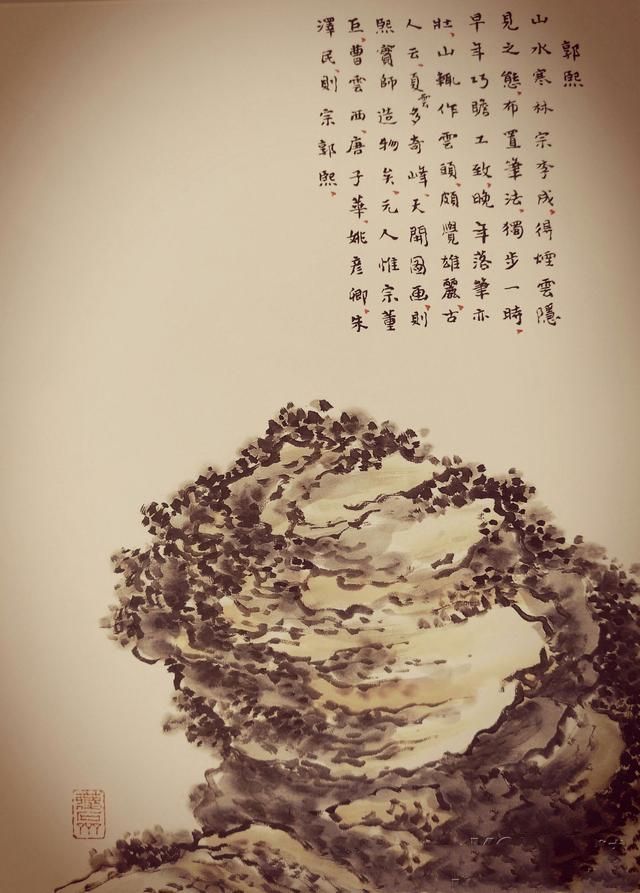 郭熙
山水寒林宗李成得煙雲隱
見之態布置筆法獨步一時
早年巧贍工致晚年落筆亦
壯山輒作雲頭頗覺雄麗古
人云夏雲多奇峰天開圖画則
熙實師造物矣元人惟宗董
巨曹雲西唐子華姚彥卿朱
澤民則宗郭熙